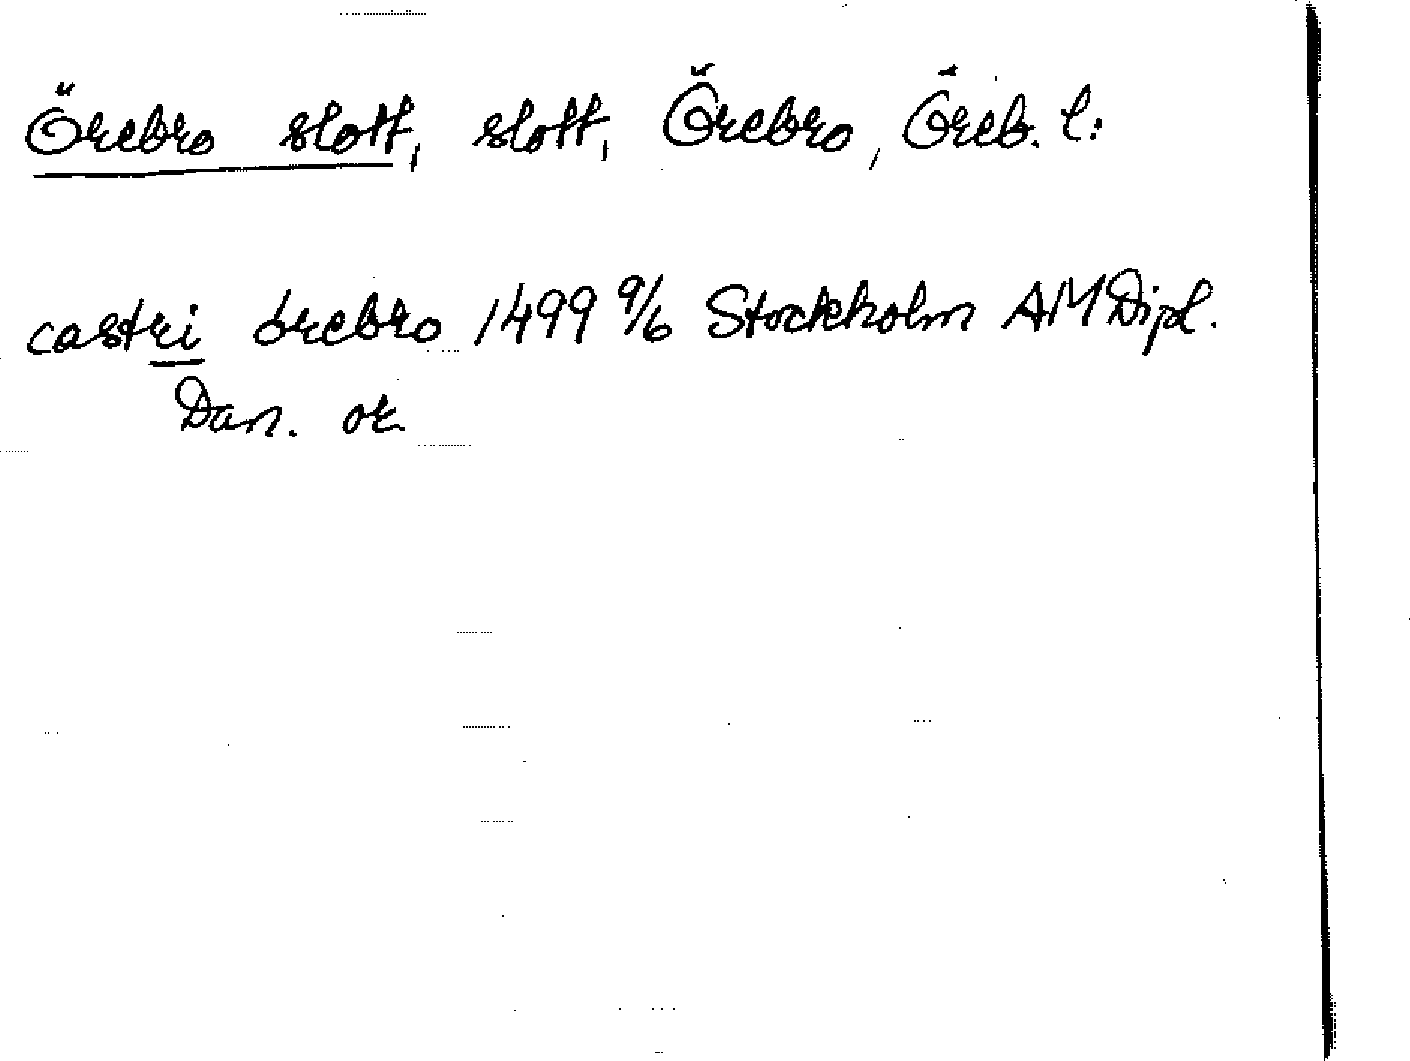 Örebro slott, slott, Örebro, Öreb. l:
castri örebro 1499 9/6 Stockholm AM Dipl.
Dan. or.